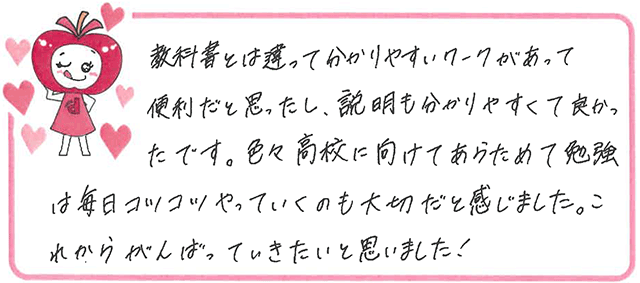 教科書とは違って分かりやすいワークがあって
便利だと思ったし、説明も分かりやすくて良かっ
たです。色々高校に向けてあらためて勉強
は毎日コツコツやっていくのも大切だと感じました。こ
れからがんばっていきたいと思いました!